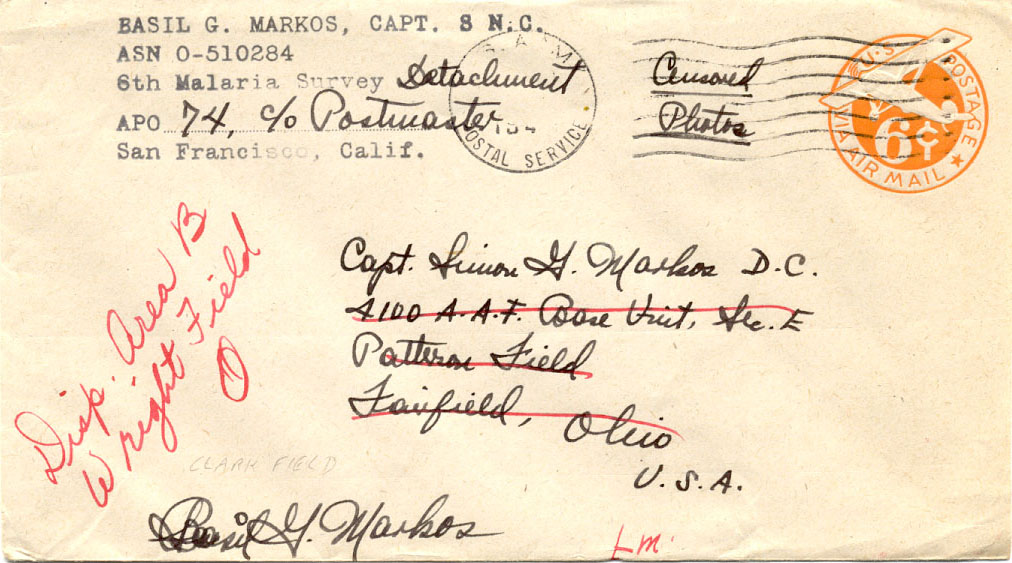 BASIL G. MARKOS, CAPT. S N.C.
ASN O-510284
6th Malaria Survey Detachment
APO 74, c/o Postmaster
San Francisco, Calif.
POSTAL SERVICE
Censored
Photos
U.S. POSTAGE
6¢
VIA AIR MAIL
Capt. Simon G. Markos D.C.
4100 A.A.F. Base Unit, Sec. E
Patterson Field
Fairfield, Ohio
U.S.A.
Disp. Area B
Wright Field
O
CLARK FIELD
Basil G. Markos
Lm.